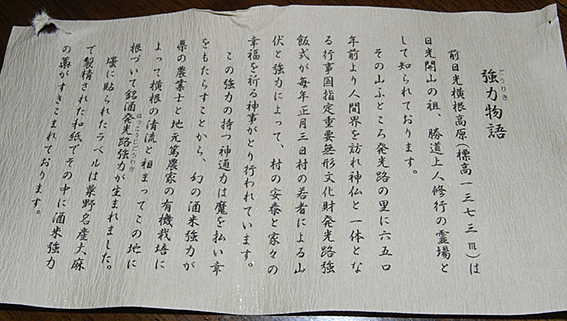 強力物語
ごうりき
前日光横根高原(標高一三七三m)は
日光開山の祖、勝道上人修行の霊場と
して知られております。
その山ふところ発光路の里に六五〇
年前より人間界を訪れ神仏と一体とな
る行事国指定重要無形文化財発光路強
飯式が毎年正月三日村の若者による山
伏と強力によって、村の安泰と家々の
幸福を祈る神事がとり行われています。
この強力の持つ神通力は魔を払い幸
をもたらすことから、幻の酒米強力が
県の農業士と地元篤農家の有機栽培に
よって横根の清流と相まってこの地に
根づいて銘酒発光路強力が生まれました。
ほっこうじごうりき
壜に貼られたラベルは粟野名産大麻
で製精された和紙でその中に酒米強力
の藁がすきこまれております。